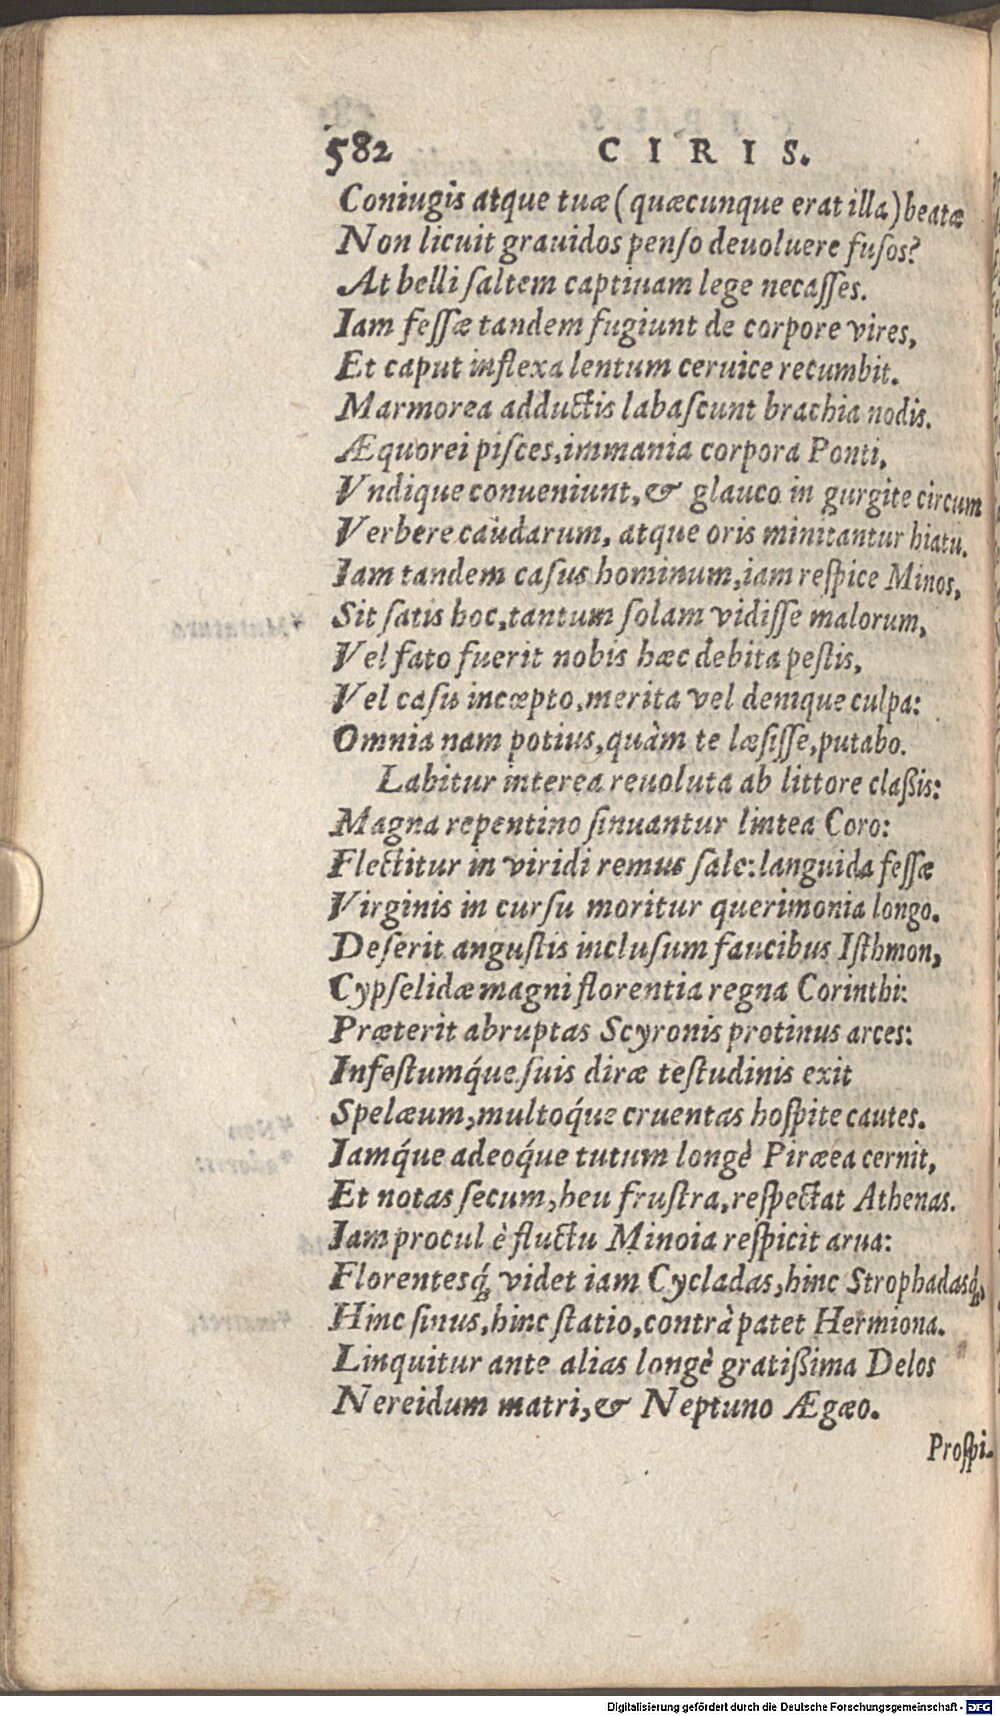 582 CIRIS.
Coniugis atque tuæ (quæcunque erat illa) beatæ
Non licuit grauidos penso deuoluere fusos?
At belli saltem captiuam lege necasses.
Iam fessæ tandem fugiunt de corpore vires,
Et caput inflexa lentum ceruice recumbit.
Marmorea adductis labascunt brachia nodis.
Æquorei pisces, immania corpora Ponti,
Vndique conueniunt, & glauco in gurgite circum
Verbere caudarum, atque oris minitantur hiatu.
Iam tandem casus hominum, iam respice Minos,
Sit satis hoc, tantum solam vidisse malorum,
Vel fato fuerit nobis hæc debita pestis,
Vel casu incœpto, merita vel denique culpa:
Omnia nam potius, quàm te læsisse, putabo.
Labitur interea reuoluta ab littore claßis:
Magna repentino sinuantur lintea Coro:
Flectitur in viridi remus sale: languida fessæ
Virginis in cursu moritur querimonia longo.
Deserit angustis inclusum faucibus Isthmon,
Cypselidæ magni florentia regna Corinthi:
Præterit abruptas Scyronis protinus arces:
Infestumq́ue suis diræ testudinis exit
Spelæum, multoq́ue cruentas hospite cautes.
Iamq́ue adeoq́ue tutum longè Piræea cernit,
Et notas secum, heu frustra, respectat Athenas.
Iam procul è fluctu Minoia respicit arua:
Florentesq́; videt iam Cycladas, hinc Strophadasq́;,
Hinc sinus, hinc statio, contrà patet Hermiona.
Linquitur ante alias longè gratißima Delos
Nereidum matri, & Neptuno Ægæo.
Prospi-
Digitalisierung gefördert durch die Deutsche Forschungsgemeinschaft - DFG